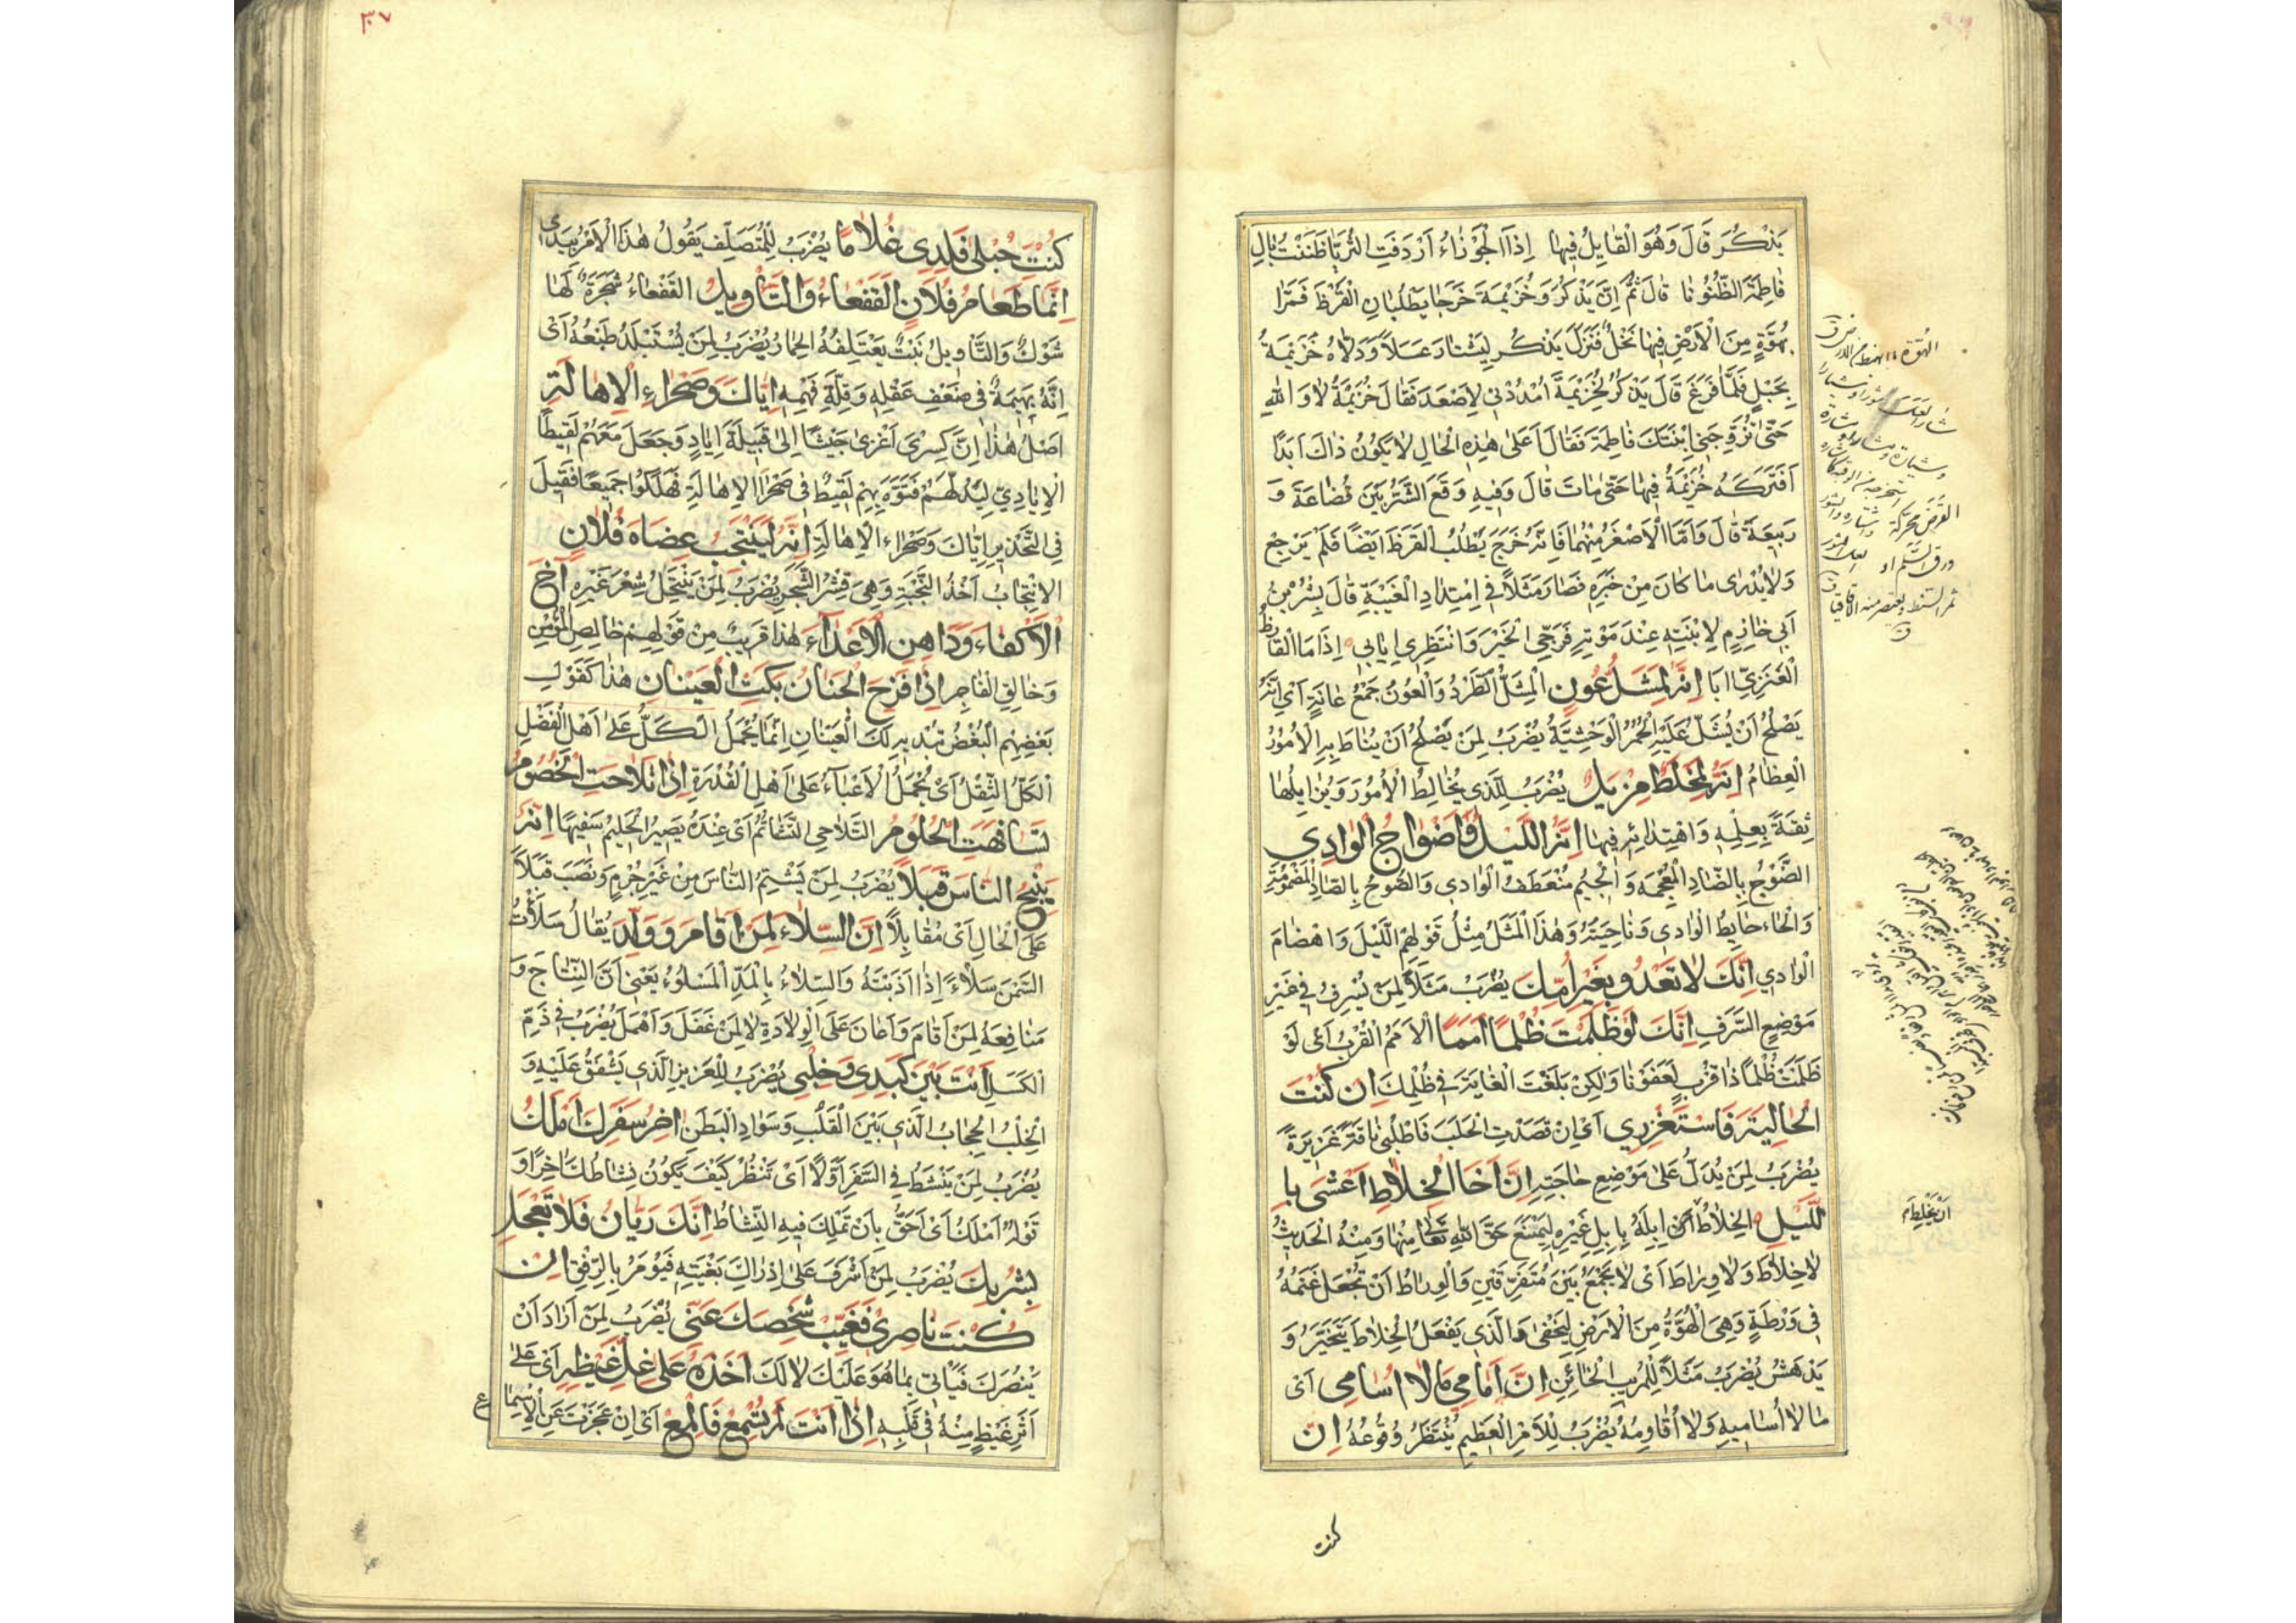 يَذْكُرَ قَالَ وَهُوَ الْقَايِلُ فِيهَا إِذَا الْجَوْزَاءُ اَرْدَفَتِ الثُّرَيَّا ظَنَنْتُ بِالِ
فَاطِمَةَ الظُّنُونَا قَالَ ثُمَّ اِنَّ يَذْكُرَ وَخُزَيْمَةَ خَرَجَا يَطْلُبَانِ الْقَرَظَ فَمَرَّا
بِهُوَّةٍ مِنَ الْاَرْضِ فِيهَا نَحْلٌ فَنَزَلَ يَذْكُر لِيَشْتَارَ عَسَلًا وَدَلَّاهُ خُزَيْمَةُ
بِحَبْلٍ فَلَمَّا فَرَغَ قَالَ يَذْكُرُ لِخُزَيْمَةَ اُمْدُدْنِي لِاَصْعَدَ فَقَالَ خُزَيْمَةُ لَا وَاللهِ
حَتّٰى تُزَوِّجَنِي اِبْنَتَكَ فَاطِمَةَ فَقَالَ اَعَلٰى هٰذِهِ الْحَالِ لَا يَكُونُ ذَاكَ اَبَدًا
فَتَرَكَهُ خُزَيْمَةُ فِيهَا حَتّٰى مَاتَ قَالَ وَفِيهِ وَقَعَ الشَّرُّ بَيْنَ قُضَاعَةَ وَ
رَبِيعَةَ قَالَ وَاَمَّا الْاَصْغَرُ مِنْهُمَا فَاِنَّهُ خَرَجَ يَطْلُبُ الْقَرَظَ اَيْضًا فَلَمْ يَرْجِعْ
وَلَا يُدْرٰى مَا كَانَ مِنْ خَبَرِهِ فَصَارَ مَثَلًا فِي اِمْتِدَادِ الْغَيْبَةِ قَالَ بِشْرُ بْنُ
اَبِي خَازِمٍ لِابْنَتِهِ عِنْدَ مَوْتِهِ فَرَجِّي الْخَيْرَ وَانْتَظِرِي اِيَابِي اِذَا مَا الْقَارِظُ
الْعَنَزِيُّ اٰبَا اِنَّهُ لَمِشَلُّ عُونٍ الْمِشَلُّ الطَّرْدُ وَالْعُونُ جَمْعُ عَانَةٍ اَيْ اِنَّهُ
يَصْلُحُ اَنْ يُشَلَّ عَلَيْهِ الْحُمُرُ الْوَحْشِيَّةُ يُضْرَبُ لِمَنْ يَصْلُحُ اَنْ يُنَاطَ بِهِ الْاُمُورُ
الْعِظَامُ اِنَّهُ لَمِخْلَطٌ مِزْيَلٌ يُضْرَبُ لِلَّذِي يُخَالِطُ الْاُمُورَ وَيُزَايِلُهَا
ثِقَةً بِعِلْمِهِ وَاهْتِدَائِهِ فِيهَا اِنَّهُ اللَّيْلُ وَاَضْوَاجُ الْوَادِي
الضَّوْجُ بِالضَّادِ الْمُعْجَمَةِ وَالْجِيمِ مُنْعَطَفُ الْوَادِي وَالصُّوحُ بِالصَّادِ الْمَضْمُومَةِ
وَالْحَاءِ حَايِطُ الْوَادِي وَنَاحِيَتُهُ وَهٰذَا الْمَثَلُ مِثْلُ قَوْلِهِمْ اللَّيْلَ وَاهْضَامَ
الْوَادِي اِنَّكَ لَا تَعْدُو بِغَيْرِ اُمِّكَ يُضْرَبُ مَثَلًا لِمَنْ يُسْرِفُ فِي غَيْرِ
مَوْضِعِ السَّرَفِ اِنَّكَ لَوْ ظَلَمْتَ ظُلْمًا اَمَمًا الْاَمَمُ الْقُرْبُ اَيْ لَوْ
ظَلَمْتَ ظُلْمًا ذَا قُرْبٍ لَعَفَوْنَا وَلٰكِنْ بَلَغْتَ الْغَايَةَ فِي ظُلْمِكَ اِنْ كُنْتَ
الْحَالِبَةَ فَاسْتَغْزِرِي اَيْ اِنْ قَصَدْتِ الْحَلَبَ فَاطْلُبِي نَاقَةً غَزِيرَةً
يُضْرَبُ لِمَنْ يُدَلُّ عَلٰى مَوْضِعِ حَاجَتِهِ اِنَّ اَخَا الْخِلَاطِ اَعْشٰى بِا
للَّيْلِ الْخِلَاطُ اَنْ اِبِلَهُ بِاِبِلِ غَيْرِهِ لِيَمْنَعَ حَقَّ اللهِ تَعَالٰى مِنْهَا وَمِنْهُ الْحَدِيثُ
لَا خِلَاطَ وَلَا وِرَاطَ اَيْ لَا يُجْمَعُ بَيْنَ مُتَفَرِّقَيْنِ وَالْوِرَاطُ اَنْ تُجْعَلَ غَنَمُهُ
فِي وَرْطَةٍ وَهِيَ الْهُوَّةُ مِنَ الْاَرْضِ لِيَخْفٰى وَالَّذِي يَفْعَلُ الْخِلَاطَ يَتَحَيَّرُ وَ
يَدْهَشُ يُضْرَبُ مَثَلًا لِلْمُرِيبِ الْخَائِنِ اِنَّ اَمَامِي مَا لَا اُسَامِي اَيْ
مَا لَا اُسَامِيهِ وَلَا اُقَاوِمُهُ يُضْرَبُ لِلْاَمْرِ الْعَظِيمِ يُنْتَظَرُ وُقُوعُهُ اِنْ
كنت
الهوّة ما انهبط من الارض ق
القرظ محركة
ورق السلم او
ثمر السنط ويعتصر منه الاقاقيا
اَنْ يَخْلِطَ م
٣٧
كُنْتِ حُبْلٰى فَلِدِي غُلَامًا يُضْرَبُ لِلْمُتَصَلِّفِ يَقُولُ هٰذَا الْاَمْرُ بِيَدِي
اِنَّمَا طَعَامُ فُلَانٍ الْقَفْعَاءُ وَالتَّأْوِيلُ الْقَفْعَاءُ شَجَرَةٌ لَهَا
شَوْكٌ وَالتَّأْوِيلُ نَبْتٌ يَعْتَلِفُهُ الْحِمَارُ يُضْرَبُ لِمَنْ يُسْتَبْلَدُ طَبْعُهُ اَيْ
اِنَّهُ بَهِيمَةٌ فِي ضَعْفِ عَقْلِهِ وَقِلَّةِ فَهْمِهِ اِيَّاكَ وَصَحْرَاءَ الْاِهَالَةِ
اَصْلُ هٰذَا اِنَّ كِسْرٰى اَغْزٰى جَيْشًا اِلٰى قَبِيلَةِ اِيَادٍ وَجَعَلَ مَعَهُمْ لَقِيطًا
الْاِيَادِيَّ لِيَدُلَّهُمْ فَتَوَّهَ بِهِمْ لَقِيطٌ فِي صَحْرَاءِ الْاِهَالَةِ فَهَلَكُوا جَمِيعًا فَقِيلَ
فِي التَّحْذِيرِ اِيَّاكَ وَصَحْرَاءَ الْاِهَالَةِ اِنَّهُ لَيَنْتَجِبُ عِضَاهَ فُلَانٍ
الْاِنْتِجَابُ اَخْذُ النَّجَبَةِ وَهِيَ قِشْرُ الشَّجَرِ يُضْرَبُ لِمَنْ يَنْتَحِلُ شِعْرَ غَيْرِهِ اٰخِ
الْاَكْفَاءَ وَدَاهِنِ الْاَعْدَاءَ هٰذَا قَرِيبٌ مِنْ قَوْلِهِمْ خَالِصِ الْمُؤْمِنَ
وَخَالِقِ الْفَاجِرَ اِذَا قَرِحَ الْجَنَانُ بَكَتِ الْعَيْنَانِ هٰذَا كَقَوْلِ
بَعْضِهِمُ الْبُغْضُ تُبْدِيهِ لَكَ الْعَيْنَانِ اِنَّمَا يُحْمَلُ الْكَلُّ عَلٰى اَهْلِ الْفَضْلِ
الْكَلُّ الثِّقْلُ اَيْ يُحْمَلُ الْاَعْبَاءُ عَلٰى اَهْلِ الْقُدْرَةِ اِذَا تَلَاحَتِ الْخُصُومُ
تَسَافَهَتِ الْحُلُومُ التَّلَاحِي التَّشَاتُمُ اَيْ عِنْدَهُ يَصِيرُ الْحَلِيمُ سَفِيهًا اِنَّهُ
يَنْبَحُ النَّاسَ قَبَلًا يُضْرَبُ لِمَنْ يَشْتِمُ النَّاسَ مِنْ غَيْرِ جُرْمٍ وَنُصِبَ قَبَلًا
عَلَى الْحَالِ اَيْ مُقَابِلًا اِنَّ السِّلَاءَ لِمَنْ اَقَامَ وَوَلَّدَ يُقَالُ سَلَأْتُ
السَّمْنَ سَلْاءً اِذَا اَذَبْتَهُ وَالسِّلَاءُ بِالْمَدِّ الْمَسْلُوءُ يَعْنِي اَنَّ النِّتَاجَ وَ
مَنَافِعَهُ لِمَنْ اَقَامَ وَاَعَانَ عَلَى الْوِلَادَةِ لَا لِمَنْ غَفَلَ وَاَهْمَلَ يُضْرَبُ فِي ذَمِّ
الْكَسَلِ اَنْتَ بَيْنَ كَبِدِي وَخِلْبِي يُضْرَبُ لِلْعَزِيزِ الَّذِي يَشْفَقُ عَلَيْهِ وَ
الْخِلْبُ الْحِجَابُ الَّذِي بَيْنَ الْقَلْبِ وَسَوَادِ الْبَطَنِ اٰخِرُ سَفَرِكَ اَمْلَكُ
يُضْرَبُ لِمَنْ يَنْشَطُ فِي السَّفَرِ اَوَّلًا اَيْ تَنْظُرْ كَيْفَ يَكُونُ نَشَاطُكَ اٰخِرًا وَ
قَوْلُهُ اَمْلَكُ اَيْ اَحَقُّ بِاَنْ تَمْلِكَ فِيهِ النَّشَاطَ اِنَّكَ رَيَّانُ فَلَا تَعْجَلْ
بِشُرْبِكَ يُضْرَبُ لِمَنْ اَشْرَفَ عَلٰى اِدْرَاكِ بُغْيَتِهِ فَيُؤْمَرُ بِالرِّفْقِ اِنْ
كُنْتَ نَاصِرِي فَغَيِّبْ شَخْصَكَ عَنِّي يُضْرَبُ لِمَنْ اَرَادَ اَنْ
يَنْصُرَكَ فَيَأْتِي بِمَا هُوَ عَلَيْكَ لَا لَكَ اَخَذَهُ عَلٰى غِلِّ غَيْظِهِ اَيْ عَلٰى
اَثَرِ غَيْظٍ مِنْهُ فِي قَلْبِهِ اِذَا اَنْتَ لَمْ تُسْمِعْ فَاَلْمِعْ اَيْ اِنْ عَجَزْتَ عَنِ الْاِسْمَا
ع